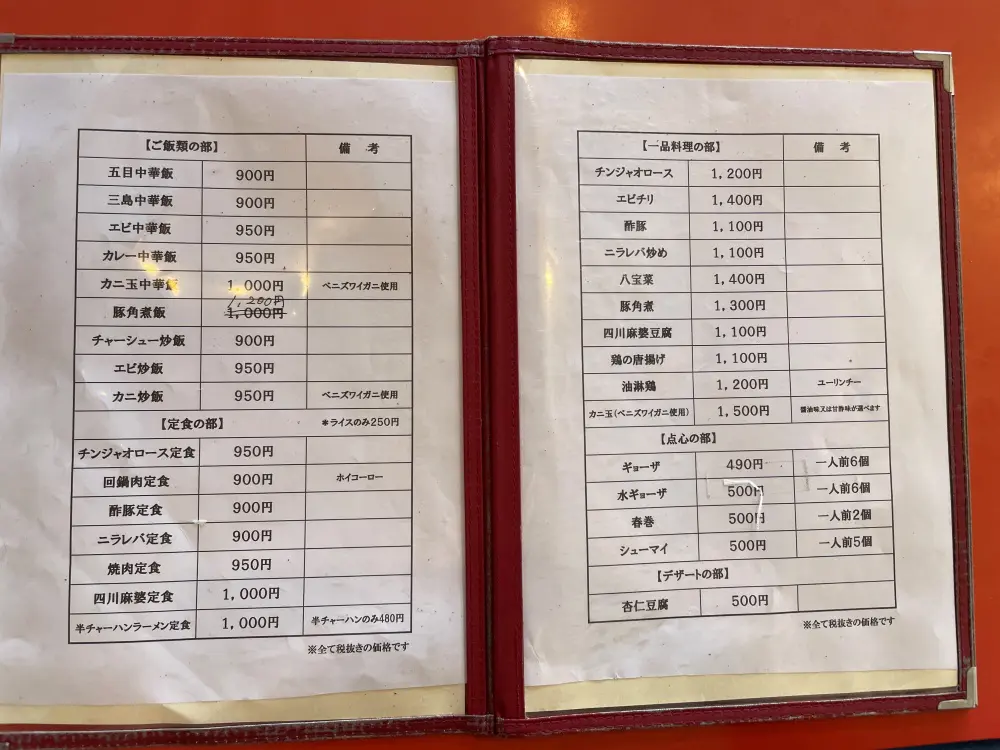 【ご飯類の部】 備 考
五目中華飯 900円
三島中華飯 900円
エビ中華飯 950円
カレー中華飯 950円
カニ玉中華飯 1,000円 ベニズワイガニ使用
1,200円
豚角煮飯 1,000円
チャーシュー炒飯 900円
エビ炒飯 950円
カニ炒飯 950円 ベニズワイガニ使用
【定食の部】 *ライスのみ250円
チンジャオロース定食 950円
回鍋肉定食 900円 ホイコーロー
酢豚定食 900円
ニラレバ定食 900円
焼肉定食 950円
四川麻婆定食 1,000円
半チャーハンラーメン定食 1,000円 半チャーハンのみ480円
※全て税抜きの価格です
【一品料理の部】 備 考
チンジャオロース 1,200円
エビチリ 1,400円
酢豚 1,100円
ニラレバ炒め 1,100円
八宝菜 1,400円
豚角煮 1,300円
四川麻婆豆腐 1,100円
鶏の唐揚げ 1,100円
油淋鶏 1,200円 ユーリンチー
カニ玉(ベニズワイガニ使用) 1,500円 醤油味又は甘酢味が選べます
【点心の部】
ギョーザ 490円 一人前6個
水ギョーザ 500円 一人前6個
春巻 500円 一人前2個
シューマイ 500円 一人前5個
【デザートの部】
杏仁豆腐 500円
※全て税抜きの価格です